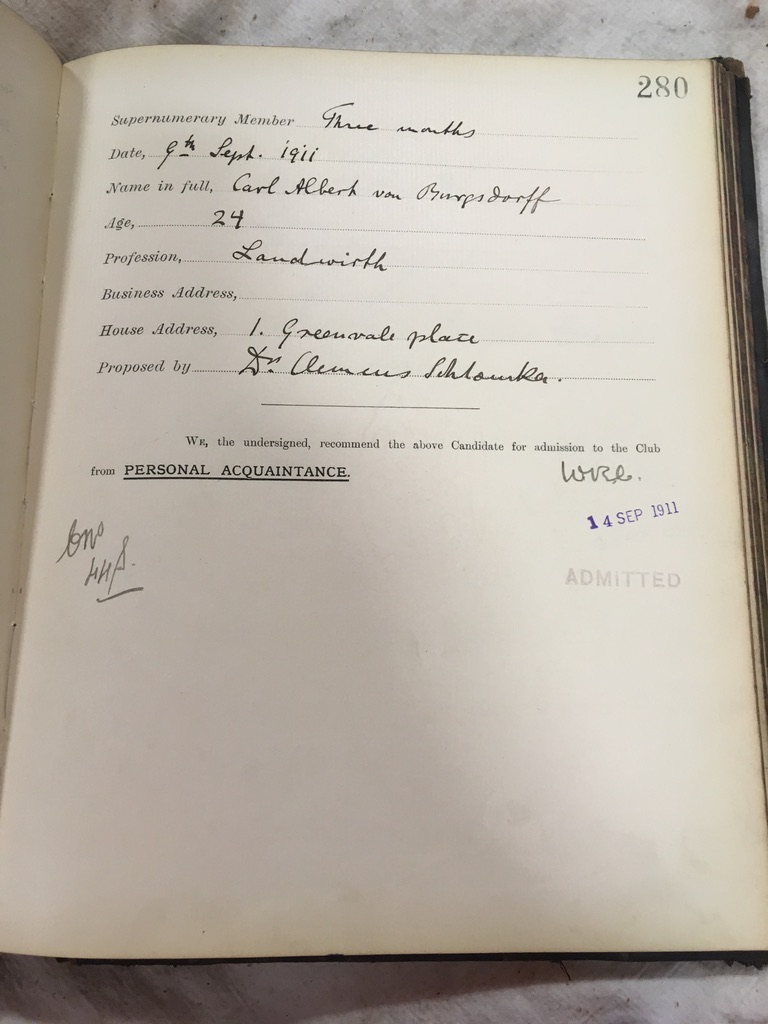 280
Supernumerary Member Three months
Date, 9th Sept. 1911
Name in full, Carl Albert von Burgsdorff
Age, 24
Profession, Landwirth
Business Address,
House Address, 1. Greenvale place
Proposed by Dr. Clemens
WE, the undersigned, recommend the above Candidate for admission to the Club
from PERSONAL ACQUAINTANCE.
14 SEP 1911
ADMITTED